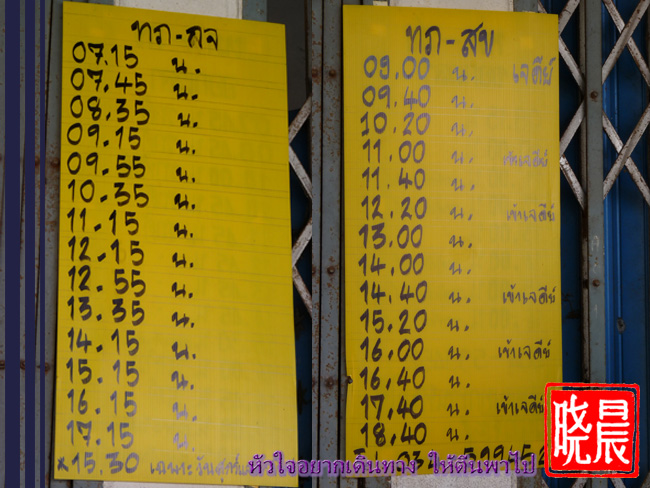 ทภ - ลจ
07.15 น.
07.45 น.
08.35 น.
09.15 น.
09.55 น.
10.35 น.
11.15 น.
12.15 น.
12.55 น.
13.35 น.
14.15 น.
15.15 น.
16.15 น.
17.15 น.
*15.30 เฉพาะวันศุกร์
ทภ - สข
09.00 น. เจดีย์
09.40 น.
10.20 น.
11.00 น. เข้าเจดีย์
11.40 น.
12.20 น. เข้าเจดีย์
13.00 น.
14.00 น.
14.40 น. เข้าเจดีย์
15.20 น.
16.00 น. เข้าเจดีย์
16.40 น.
17.40 น. เข้าเจดีย์
18.40 น.
หัวใจอยากเดินทาง ให้ตีนพาไป
晓晨